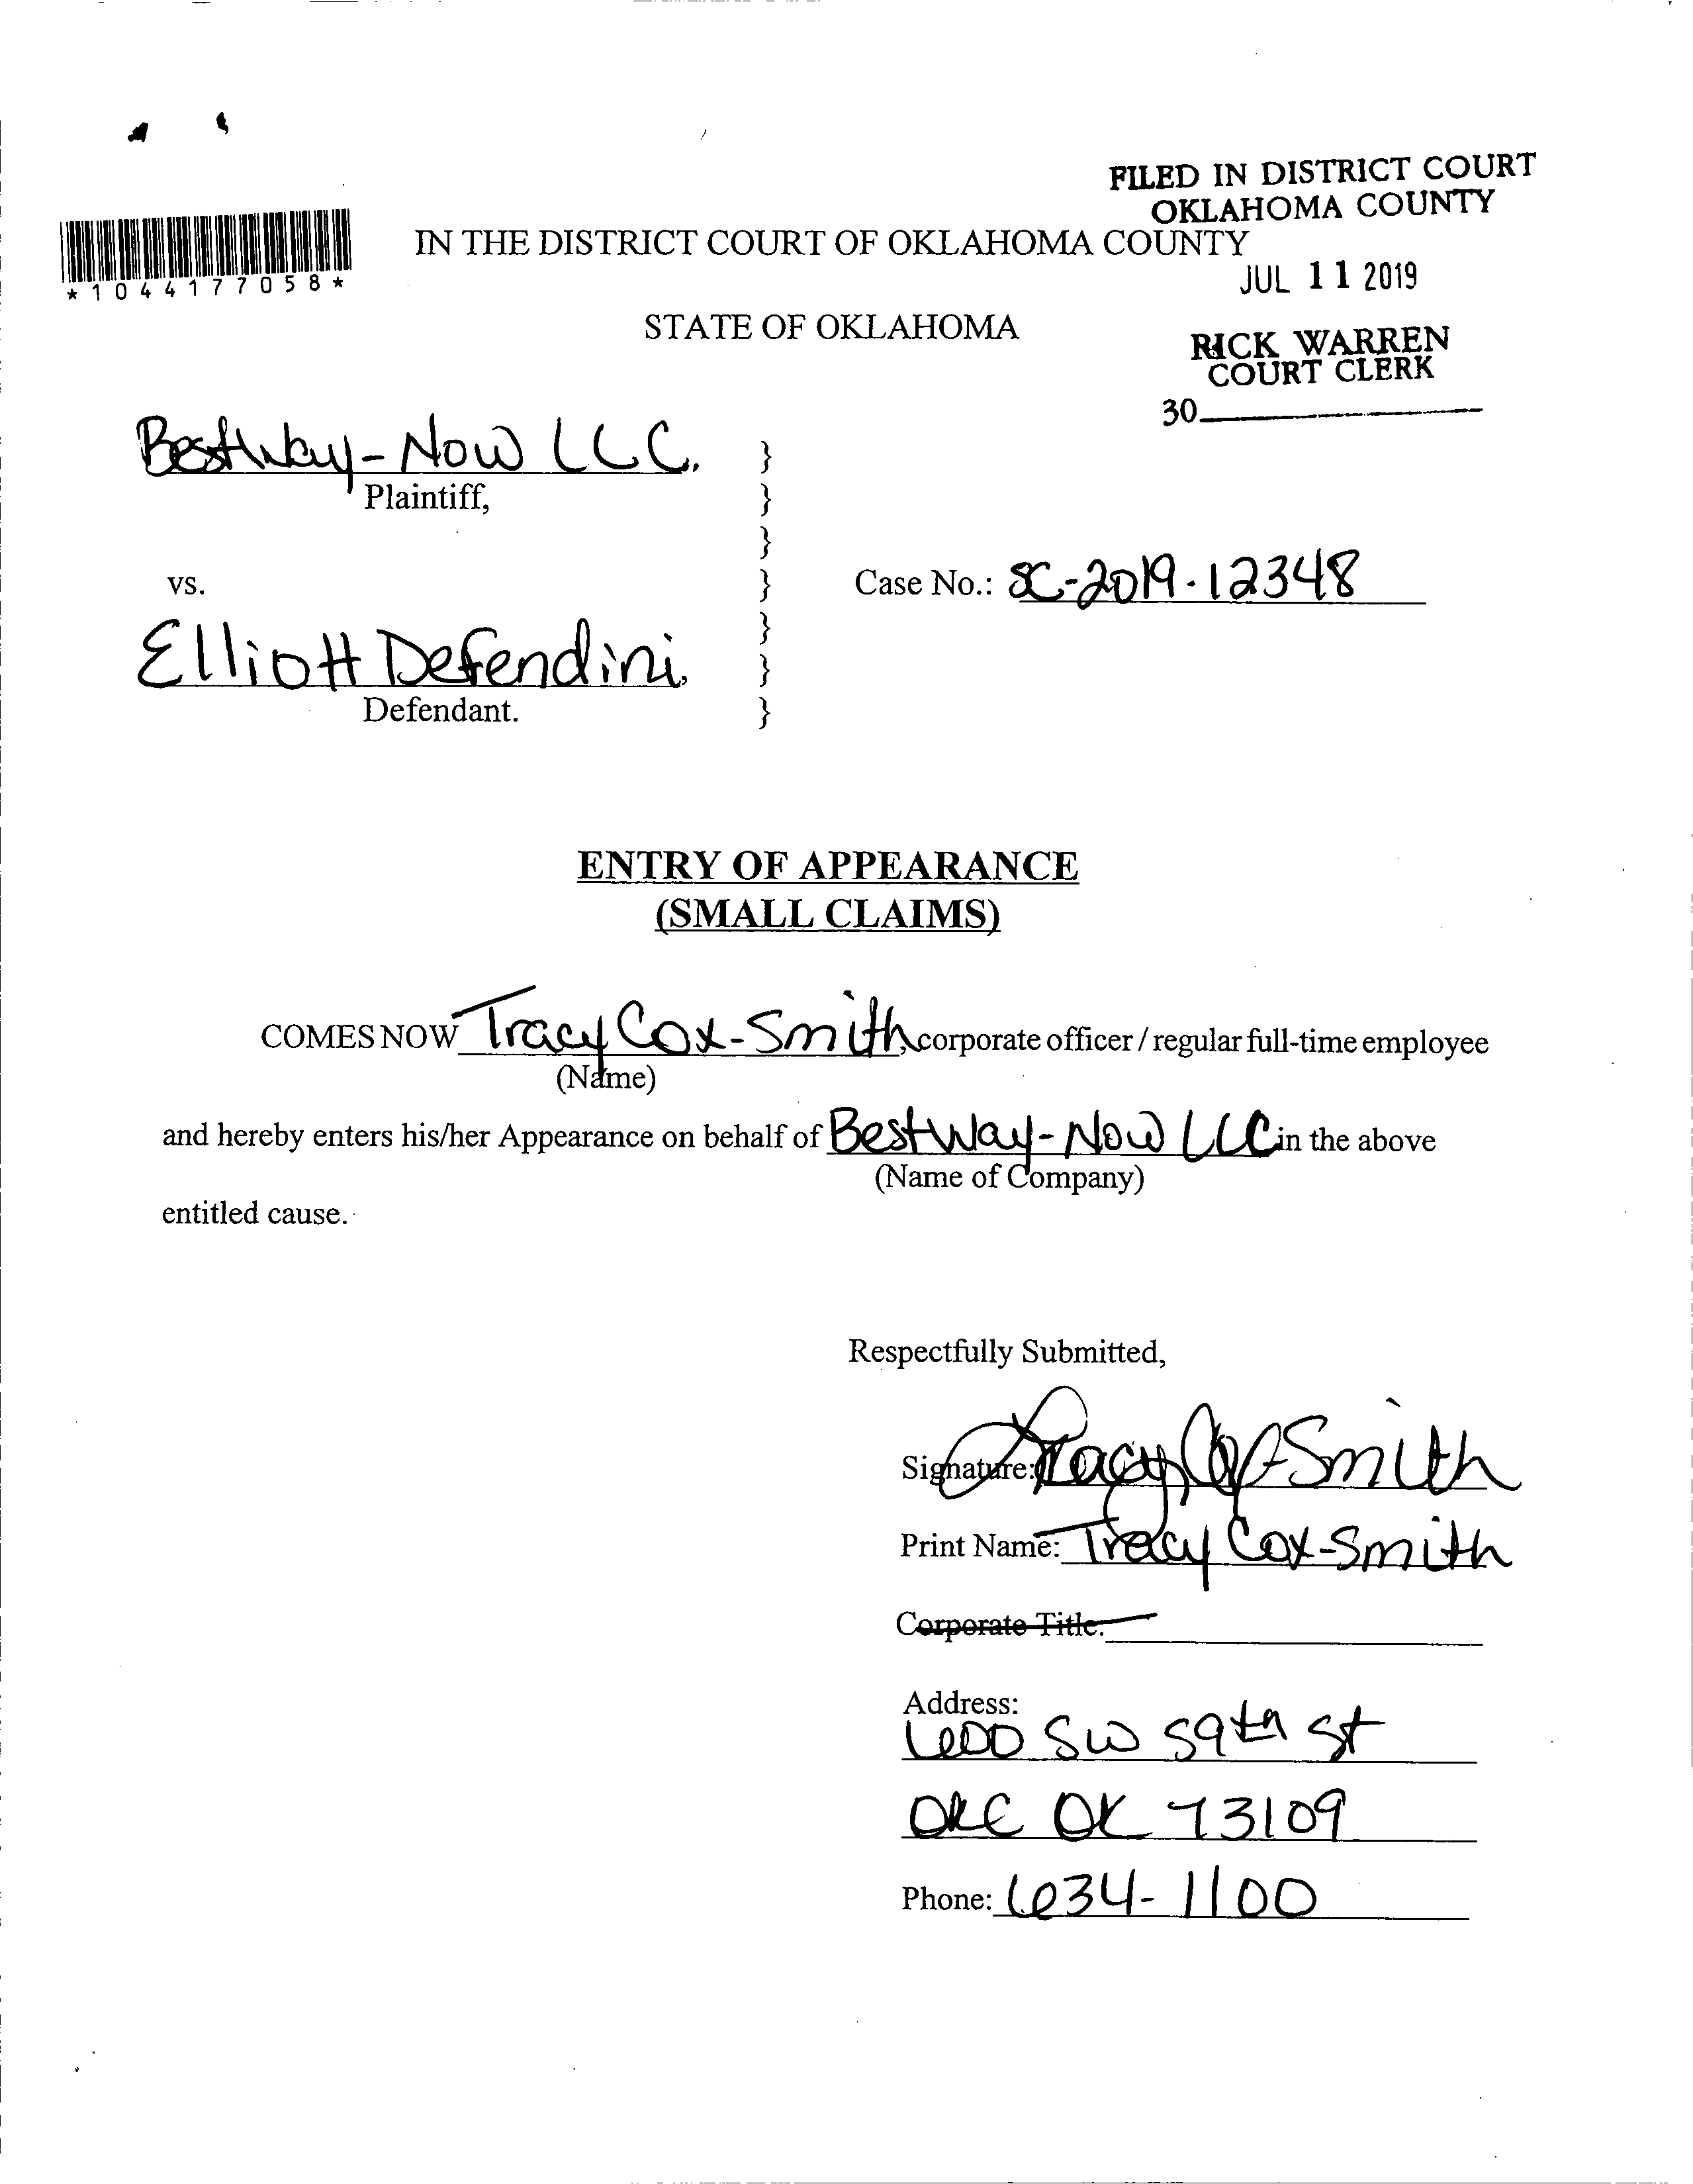 FILED IN DISTRICT COURT
OKLAHOMA COUNTY
IN THE DISTRICT COURT OF OKLAHOMA COUNTY
*1044177058*
JUL 11 2019
STATE OF OKLAHOMA
RICK WARREN
COURT CLERK
30
BestWay-Now LLC. }
Plaintiff, }
}
vs. } Case No.: SC-2019-12348
}
Elliott Defendini, }
Defendant. }
ENTRY OF APPEARANCE
(SMALL CLAIMS)
COMES NOW Tracy Cox-Smith, corporate officer / regular full-time employee
(Name)
and hereby enters his/her Appearance on behalf of BestWay-Now LLC in the above
(Name of Company)
entitled cause.
Respectfully Submitted,
Signature: Tracy Cox-Smith
Print Name: Tracy Cox-Smith
Corporate Title:
Address:
600 SW 59th St
OKC OK 73109
Phone: 634-1100